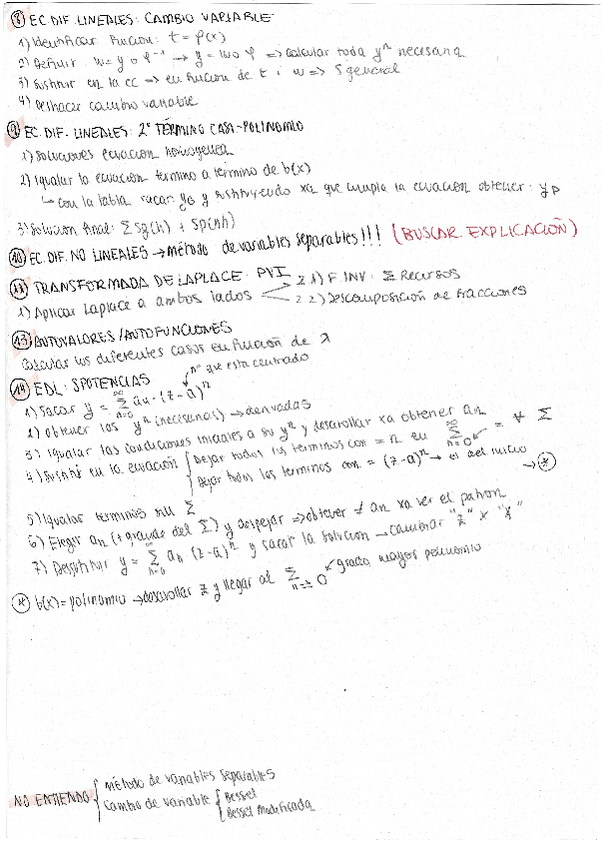 ⑧ EC. DIF. LINEALES: CAMBIO VARIABLE
1) Identificar función: t = φ(x)
2) Definir w = y o φ⁻¹ → y = w o φ => calcular toda yⁿ necesaria
3) Sustituir en la ec => en función de t i w => S general
4) Deshacer cambio variable
⑨ EC. DIF. LINEALES: 2º TÉRMINO CASI-POLINOMIO
1) Soluciones ecuación homogénea
2) Igualar la ecuación término a término de b(x)
↳ con la tabla sacar y₀ y sustituyendo xa que cumpla la ecuación obtener: yp
3) Solución final: Σ Sg(h) + Sp(nh)
⑩ EC. DIF. NO LINEALES → método de variables separables!!! (BUSCAR EXPLICACIÓN)
⑪ TRANSFORMADA DE LAPLACE: PVI
1) Aplicar Laplace a ambos lados
2.1) F INV: Σ Recursos
2.2) Descomposición de fracciones
⑬ AUTOVALORES/AUTOFUNCIONES
Calcular los diferentes casos en función de λ
⑭ EDL: SPOTENCIAS
nº que esta centrado
1) Sacar y = Σ n=0 ∞ an · (z-a)ⁿ
2) obtener los yⁿ (necesarios) → derivadas
3) Igualar las condiciones iniciales a su yⁿ y desarrollar xa obtener an
4) Sustituir en la ecuación { Dejar todos los terminos con = n en Σ n=0 ∞ = ∀ Σ
Dejar todos los terminos con = (z-a)ⁿ → el del inicio → ⊛
5) Igualar terminos sin Σ
6) Elegir an (+ grande del Σ) y despejar => obtener ≠ an xa ver el patron
7) Desstituir y = Σ n=0 ∞ an (z-a)ⁿ y sacar la solucion → cambiar "z" x "x"
⊛ b(x) = polinomio → desarrollar z y llegar al Σ n=> 0 grado mayor polinomio
NO ENTIENDO { método de variables separables
Cambio de variable { Bessel
Bessel Modificada